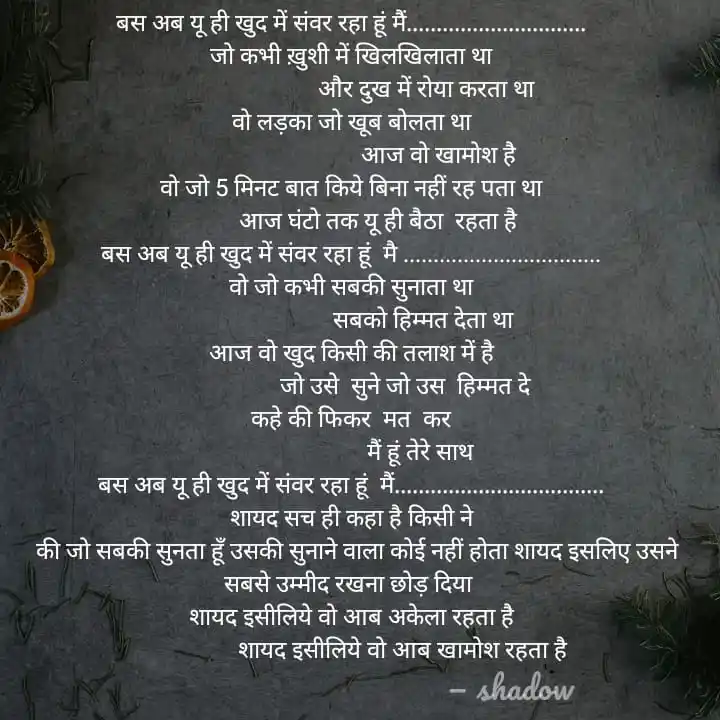 बस अब यू ही खुद में संवर रहा हूं मैं..............................
जो कभी ख़ुशी में खिलखिलाता था
और दुख में रोया करता था
वो लड़का जो खूब बोलता था
आज वो खामोश है
वो जो 5 मिनट बात किये बिना नहीं रह पता था
आज घंटो तक यू ही बैठा रहता है
बस अब यू ही खुद में संवर रहा हूं मै .................................
वो जो कभी सबकी सुनाता था
सबको हिम्मत देता था
आज वो खुद किसी की तलाश में है
जो उसे सुने जो उस हिम्मत दे
कहे की फिकर मत कर
मैं हूं तेरे साथ
बस अब यू ही खुद में संवर रहा हूं मैं...................................
शायद सच ही कहा है किसी ने
की जो सबकी सुनता हूँ उसकी सुनाने वाला कोई नहीं होता शायद इसलिए उसने
सबसे उम्मीद रखना छोड़ दिया
शायद इसीलिये वो आब अकेला रहता है
शायद इसीलिये वो आब खामोश रहता है
– shadow